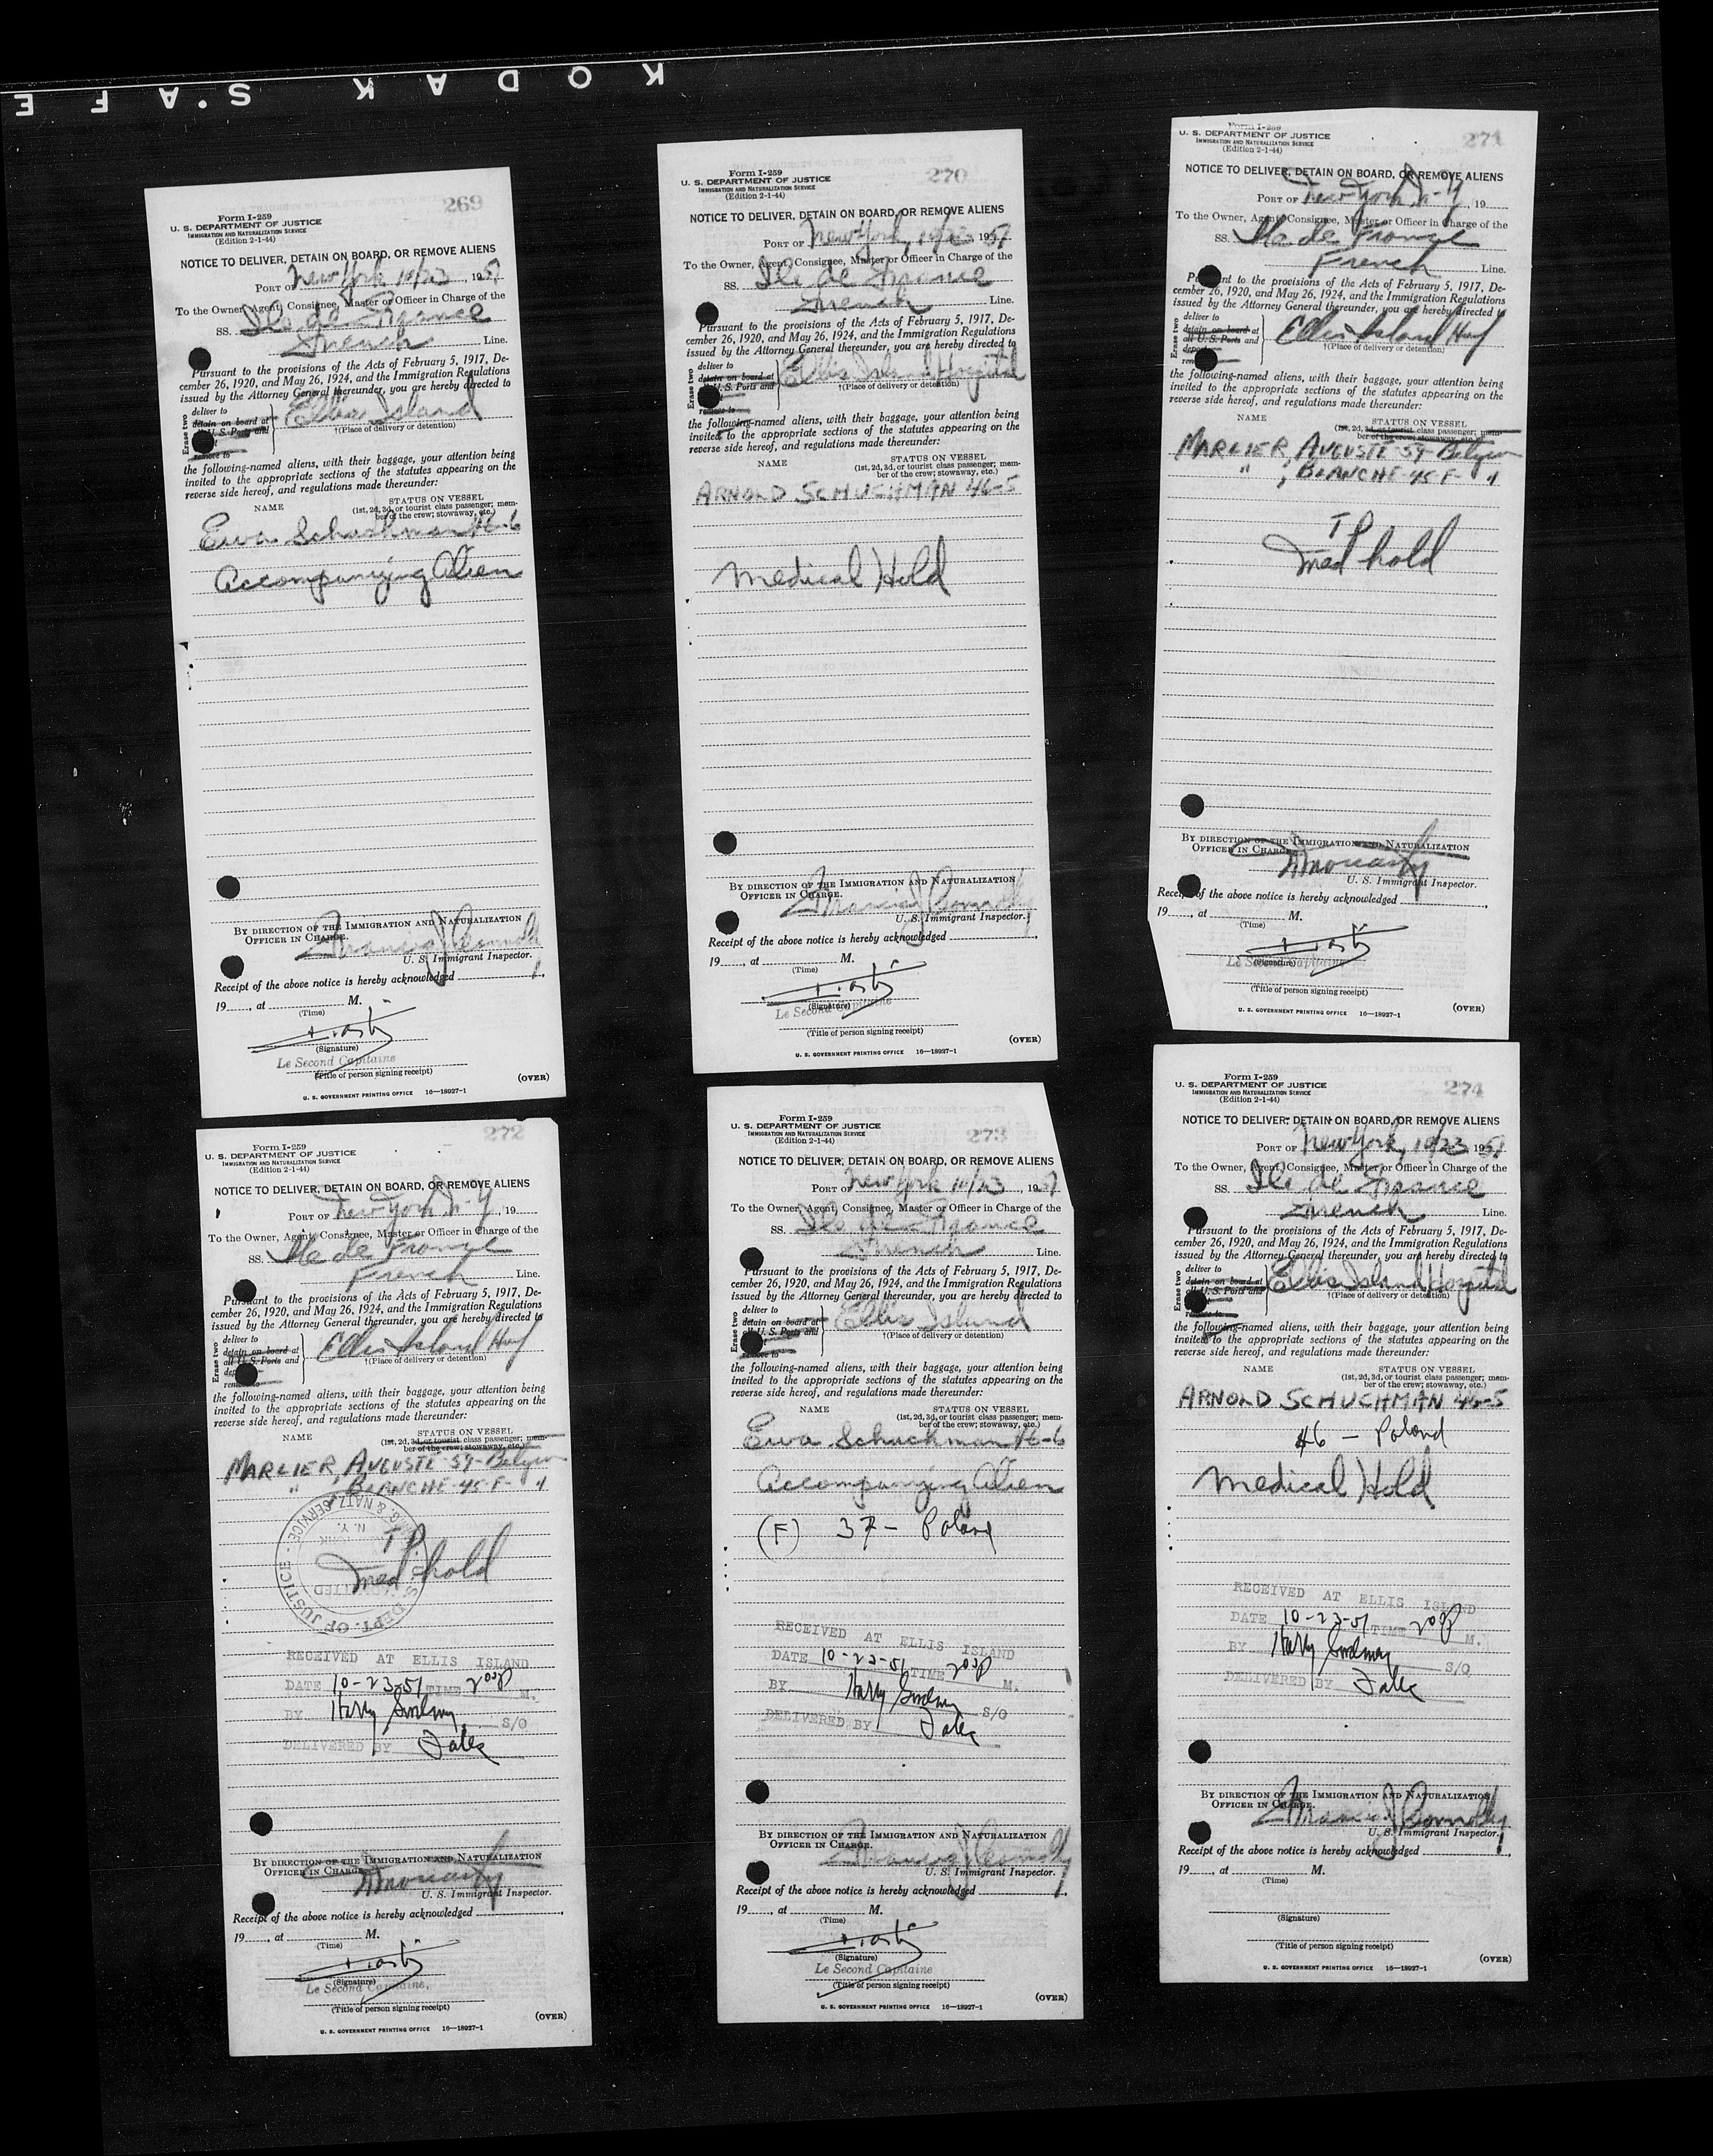 KODAK S'AFE
269
Form I-259
U. S. DEPARTMENT OF JUSTICE
IMMIGRATION AND NATURALIZATION SERVICE
(Edition 2-1-44)
NOTICE TO DELIVER, DETAIN ON BOARD, OR REMOVE ALIENS
PORT OF New York 10/23, 1951
To the Owner, Agent, Consignee, Master or Officer in Charge of the
SS. Ile de France
French Line.
Pursuant to the provisions of the Acts of February 5, 1917, De-
cember 26, 1920, and May 26, 1924, and the Immigration Regulations
issued by the Attorney General thereunder, you are hereby directed to
Erase two
deliver to
detain on board at
all U. S. Ports and
remove to
Ellis Island
†(Place of delivery or detention)
the following-named aliens, with their baggage, your attention being
invited to the appropriate sections of the statutes appearing on the
reverse side hereof, and regulations made thereunder:
NAME STATUS ON VESSEL
(1st, 2d, 3d, or tourist class passenger; mem-
ber of the crew; stowaway, etc.)
Ewa Schuchman 46-6
Accompanying Alien
BY DIRECTION OF THE IMMIGRATION AND NATURALIZATION
OFFICER IN CHARGE.
Francis J Connolly
U. S. Immigrant Inspector.
Receipt of the above notice is hereby acknowledged
19____, at ________ M.
(Time)
(Signature)
Le Second Capitaine
(Title of person signing receipt)
(OVER)
U. S. GOVERNMENT PRINTING OFFICE 16—18927-1
270
Form I-259
U. S. DEPARTMENT OF JUSTICE
IMMIGRATION AND NATURALIZATION SERVICE
(Edition 2-1-44)
NOTICE TO DELIVER, DETAIN ON BOARD, OR REMOVE ALIENS
PORT OF New York, 10/23 1951
To the Owner, Agent, Consignee, Master or Officer in Charge of the
SS. Ile de France
French Line.
Pursuant to the provisions of the Acts of February 5, 1917, De-
cember 26, 1920, and May 26, 1924, and the Immigration Regulations
issued by the Attorney General thereunder, you are hereby directed to
Erase two
deliver to
detain on board at
all U. S. Ports and
remove to
Ellis Island Hospital
†(Place of delivery or detention)
the following-named aliens, with their baggage, your attention being
invited to the appropriate sections of the statutes appearing on the
reverse side hereof, and regulations made thereunder:
NAME STATUS ON VESSEL
(1st, 2d, 3d, or tourist class passenger; mem-
ber of the crew; stowaway, etc.)
ARNOLD SCHUCHMAN 46-5
Medical Hold
BY DIRECTION OF THE IMMIGRATION AND NATURALIZATION
OFFICER IN CHARGE.
Francis J Connolly
U. S. Immigrant Inspector.
Receipt of the above notice is hereby acknowledged
19____, at ________ M.
(Time)
(Signature)
Le Second Capitaine
(Title of person signing receipt)
(OVER)
U. S. GOVERNMENT PRINTING OFFICE 16—18927-1
271
Form I-259
U. S. DEPARTMENT OF JUSTICE
IMMIGRATION AND NATURALIZATION SERVICE
(Edition 2-1-44)
NOTICE TO DELIVER, DETAIN ON BOARD, OR REMOVE ALIENS
PORT OF New York N-Y, 19
To the Owner, Agent, Consignee, Master or Officer in Charge of the
SS. Ile de France
French Line.
Pursuant to the provisions of the Acts of February 5, 1917, De-
cember 26, 1920, and May 26, 1924, and the Immigration Regulations
issued by the Attorney General thereunder, you are hereby directed to
Erase two
deliver to
detain on board at
all U. S. Ports and
Ellis Island
†(Place of delivery or detention)
the following-named aliens, with their baggage, your attention being
invited to the appropriate sections of the statutes appearing on the
reverse side hereof, and regulations made thereunder:
NAME STATUS ON VESSEL
(1st, 2d, 3d, or tourist class passenger; mem-
ber of the crew; stowaway, etc.)
MARLIER, AUGUSTE-59-Belgium
" , BLANCHE-45 F- "
TP
med hold
BY DIRECTION OF THE IMMIGRATION AND NATURALIZATION
OFFICER IN CHARGE
U. S. Immigrant Inspector.
Receipt of the above notice is hereby acknowledged
19____, at ________ M.
(Time)
(Signature)
Le Second Capitaine
(Title of person signing receipt)
(OVER)
U. S. GOVERNMENT PRINTING OFFICE 16—18927-1
272
Form I-259
U. S. DEPARTMENT OF JUSTICE
IMMIGRATION AND NATURALIZATION SERVICE
(Edition 2-1-44)
NOTICE TO DELIVER, DETAIN ON BOARD, OR REMOVE ALIENS
PORT OF New York N-Y, 19
To the Owner, Agent, Consignee, Master or Officer in Charge of the
SS. Ile de France
French Line.
Pursuant to the provisions of the Acts of February 5, 1917, De-
cember 26, 1920, and May 26, 1924, and the Immigration Regulations
issued by the Attorney General thereunder, you are hereby directed to
Erase two
deliver to
detain on board at
all U. S. Ports and
Ellis Island
†(Place of delivery or detention)
the following-named aliens, with their baggage, your attention being
invited to the appropriate sections of the statutes appearing on the
reverse side hereof, and regulations made thereunder:
NAME STATUS ON VESSEL
(1st, 2d, 3d, or tourist class passenger; mem-
ber of the crew; stowaway, etc.)
MARLIER, AUGUSTE-59-Belgium
" , BLANCHE-45 F- "
TP
med hold
U. S. DEPT. OF JUSTICE · IMMIG. & NATZ. SERVICE · N. Y.
RECEIVED AT ELLIS ISLAND
DATE 10-23-51 TIME 200P M.
BY Harry S/O
DELIVERED BY
BY DIRECTION OF THE IMMIGRATION AND NATURALIZATION
OFFICER IN CHARGE
U. S. Immigrant Inspector.
Receipt of the above notice is hereby acknowledged
19____, at ________ M.
(Time)
(Signature)
Le Second Capitaine,
(Title of person signing receipt)
(OVER)
U. S. GOVERNMENT PRINTING OFFICE 16—18927-1
273
Form I-259
U. S. DEPARTMENT OF JUSTICE
IMMIGRATION AND NATURALIZATION SERVICE
(Edition 2-1-44)
NOTICE TO DELIVER, DETAIN ON BOARD, OR REMOVE ALIENS
PORT OF New York 10/23, 1951
To the Owner, Agent, Consignee, Master or Officer in Charge of the
SS. Ile de France
French Line.
Pursuant to the provisions of the Acts of February 5, 1917, De-
cember 26, 1920, and May 26, 1924, and the Immigration Regulations
issued by the Attorney General thereunder, you are hereby directed to
Erase two
deliver to
detain on board at
all U. S. Ports and
remove to
Ellis Island
†(Place of delivery or detention)
the following-named aliens, with their baggage, your attention being
invited to the appropriate sections of the statutes appearing on the
reverse side hereof, and regulations made thereunder:
NAME STATUS ON VESSEL
(1st, 2d, 3d, or tourist class passenger; mem-
ber of the crew; stowaway, etc.)
Ewa Schuchman 46-6
Accompanying Alien
(F) 37 - Poland
RECEIVED AT ELLIS ISLAND
DATE 10-23-51 TIME 200P M.
BY Harry S/O
DELIVERED BY
BY DIRECTION OF THE IMMIGRATION AND NATURALIZATION
OFFICER IN CHARGE.
Francis J Connolly
U. S. Immigrant Inspector.
Receipt of the above notice is hereby acknowledged
19____, at ________ M.
(Time)
(Signature)
Le Second Capitaine
(Title of person signing receipt)
(OVER)
U. S. GOVERNMENT PRINTING OFFICE 16—18927-1
274
Form I-259
U. S. DEPARTMENT OF JUSTICE
IMMIGRATION AND NATURALIZATION SERVICE
(Edition 2-1-44)
NOTICE TO DELIVER, DETAIN ON BOARD, OR REMOVE ALIENS
PORT OF New York, 10/23 1951
To the Owner, Agent, Consignee, Master or Officer in Charge of the
SS. Ile de France
French Line.
Pursuant to the provisions of the Acts of February 5, 1917, De-
cember 26, 1920, and May 26, 1924, and the Immigration Regulations
issued by the Attorney General thereunder, you are hereby directed to
Erase two
deliver to
detain on board at
all U. S. Ports and
remove to
Ellis Island Hospital
†(Place of delivery or detention)
the following-named aliens, with their baggage, your attention being
invited to the appropriate sections of the statutes appearing on the
reverse side hereof, and regulations made thereunder:
NAME STATUS ON VESSEL
(1st, 2d, 3d, or tourist class passenger; mem-
ber of the crew; stowaway, etc.)
ARNOLD SCHUCHMAN 46-5
46 - Poland
Medical Hold
RECEIVED AT ELLIS ISLAND
DATE 10-23-51 TIME 200P M.
BY Harry S/O
DELIVERED BY
BY DIRECTION OF THE IMMIGRATION AND NATURALIZATION
OFFICER IN CHARGE.
Francis J Connolly
U. S. Immigrant Inspector.
Receipt of the above notice is hereby acknowledged
19____, at ________ M.
(Time)
(Signature)
(Title of person signing receipt)
(OVER)
U. S. GOVERNMENT PRINTING OFFICE 16—18927-1